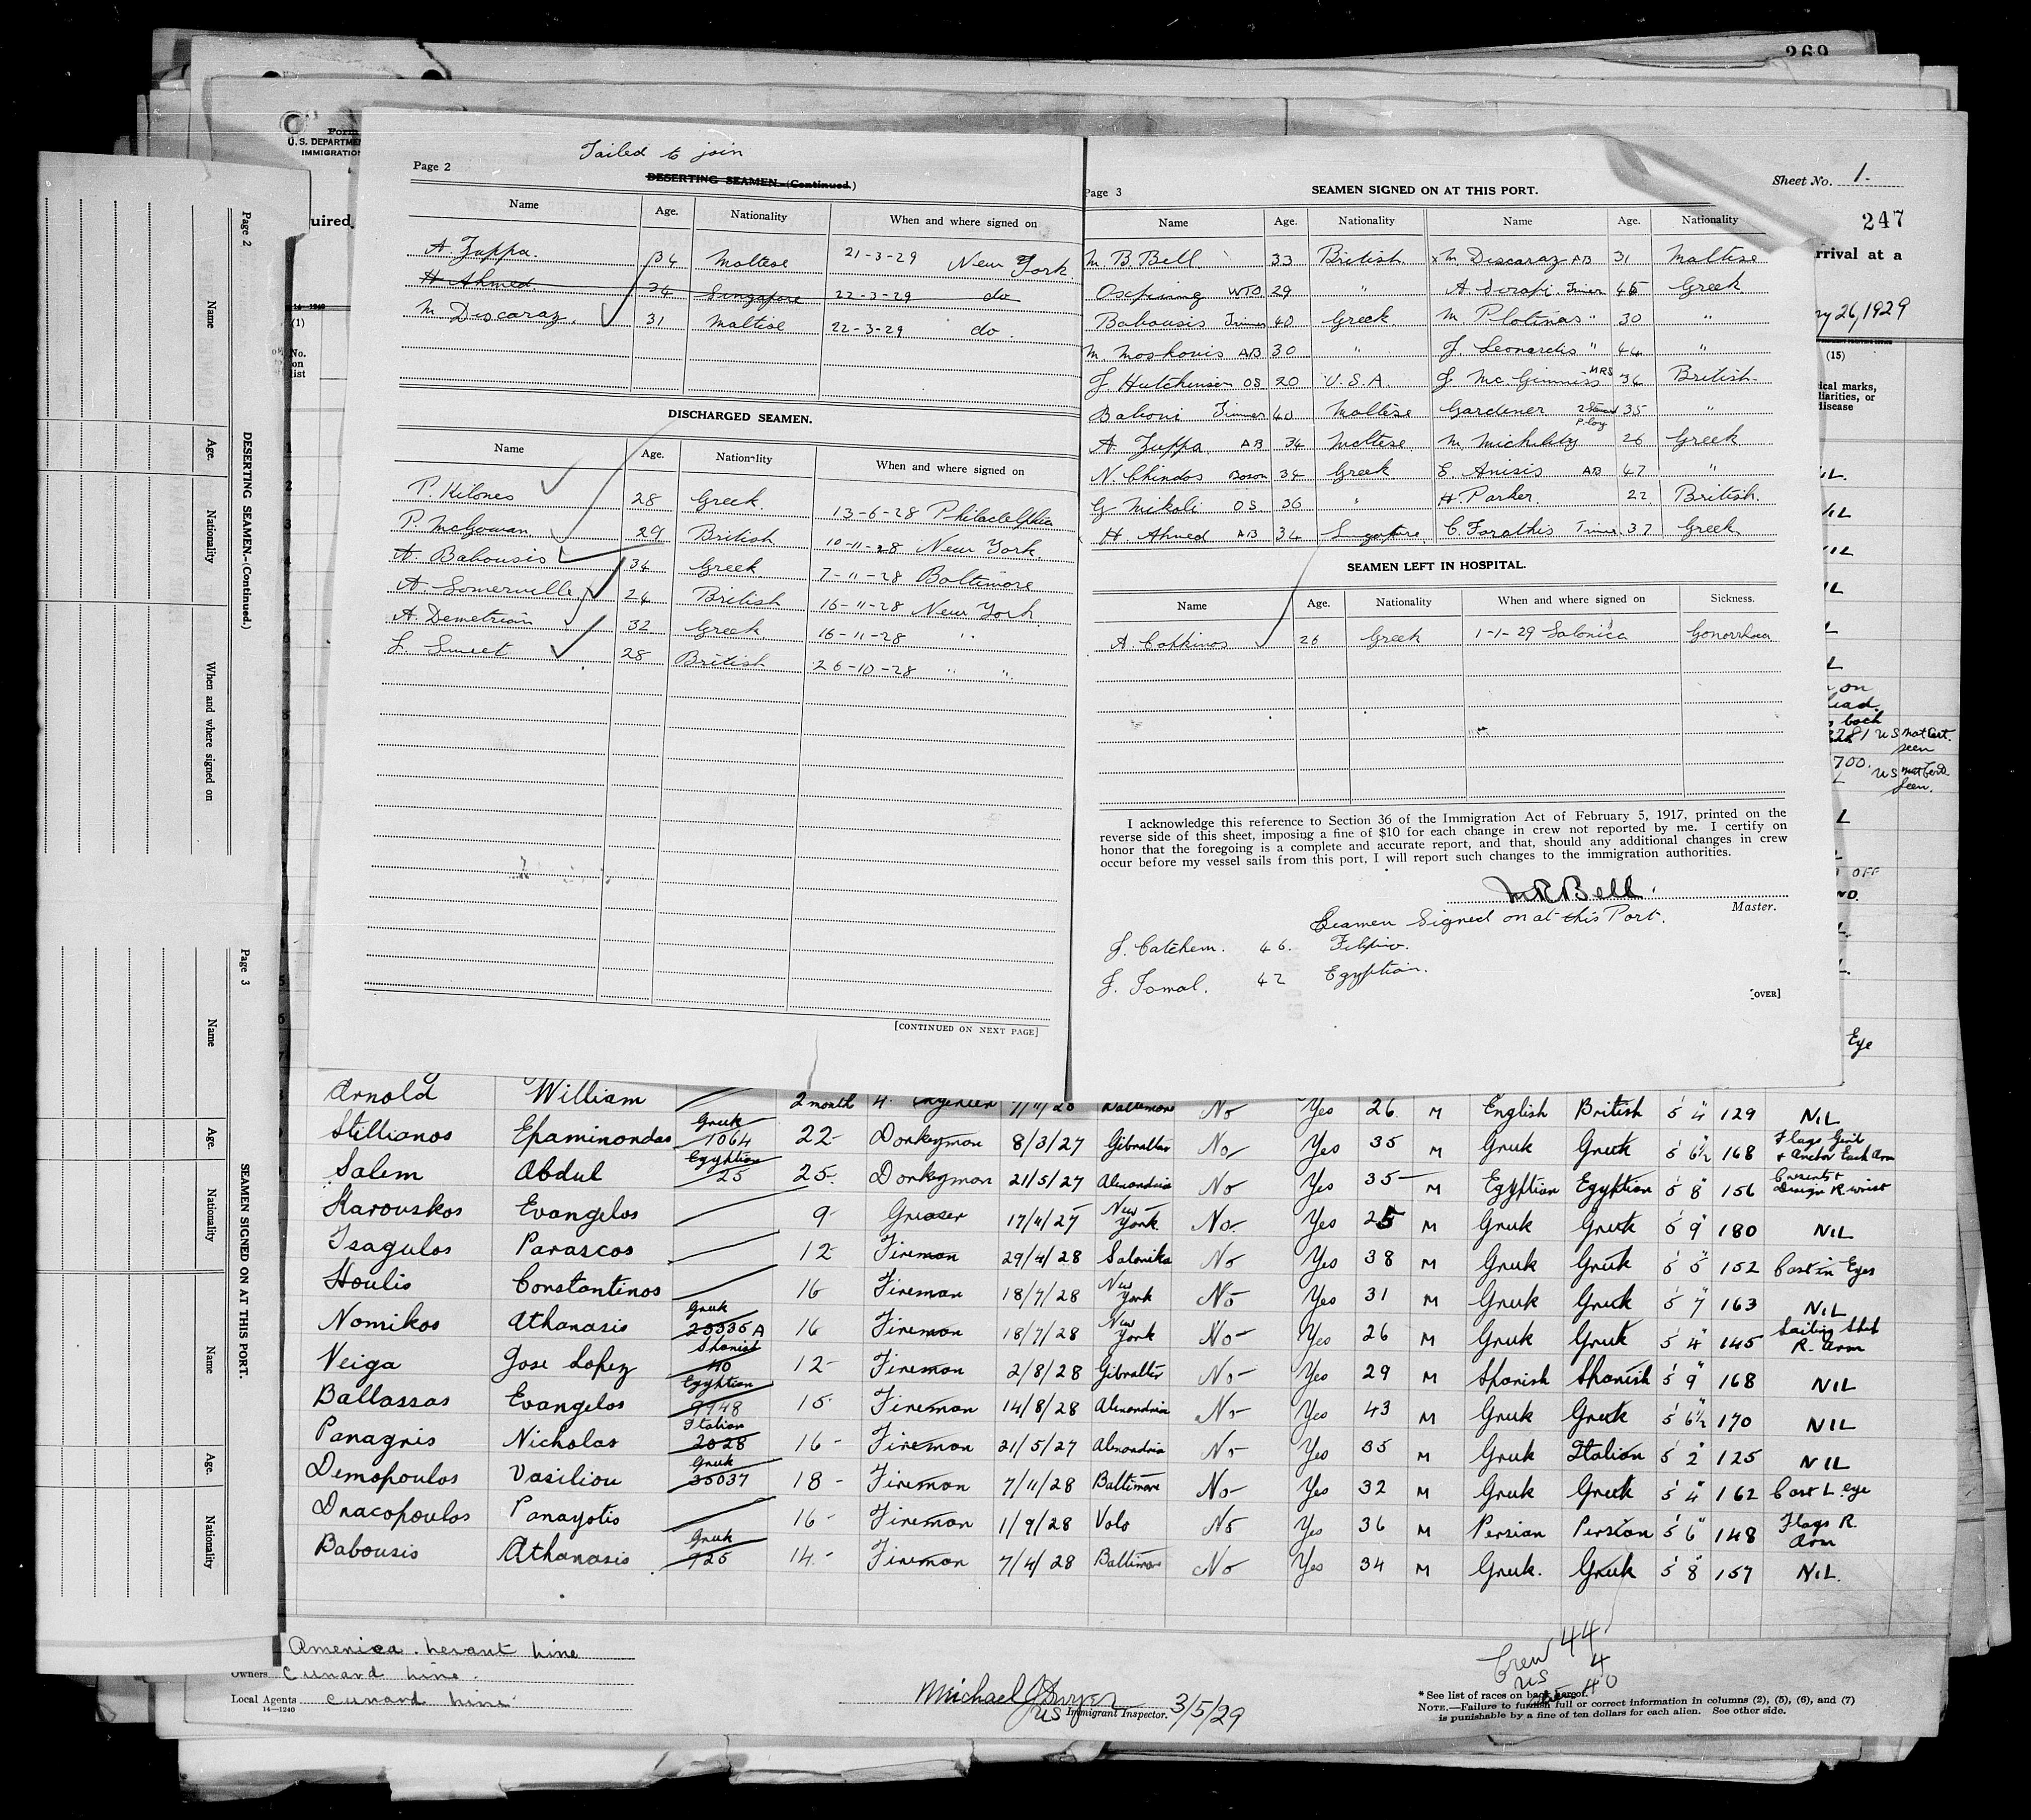 269
Form
U.S. DEPARTME
IMMIGRATION
Sheet No. 1.
247
uired,
rrival at a
ry 26, 1929
14-1240
(1)
No.
on
list
(15)
ical marks,
liarities, or
disease
Failed to join
Page 2
DESERTING SEAMEN.-(Continued.)
Name Age. Nationality When and where signed on
A. Zuppa. 34 Maltese 21-3-29 New York
H Ahmed. 34 Singapore 22-3-29 do
M Descaraz. 31 Maltese 22-3-29 do.
DISCHARGED SEAMEN.
Name Age. Nationality When and where signed on
P. Kilones 28 Greek. 13-6-28 Philadelphia
P. McGowan. 29 British 10-11-28 New York.
A. Babousis 34 Greek. 7-11-28 Baltimore
A. Somerville. 24 British 16-11-28 New York
A. Demetrion 32 Greek 16-11-28 "
L. Sweet 28 British 26-10-28 " "
[CONTINUED ON NEXT PAGE]
Page 3
SEAMEN SIGNED ON AT THIS PORT.
Name Age. Nationality Name Age. Nationality
M. B. Bell 33 British x M. Descaraz AB 31 Maltese
WTO 29 " A Serapi. Trimer 45 Greek
Babousis Trimer 40 Greek M Plotinas " 30 "
M. Moskovis AB 30 " J. Leonardis " 44 "
J Hutchinson OS 20 U.S.A. J. McGinniss MRS 36 British
Bahoni Trimmer 40 Maltese Gardener 35 "
A Zuppa. AB 34 Maltese M. 26 Greek
N. Chindos Boson 34 Greek E. Anisis AB 47 "
G Mikali OS 36 " H. Parker. 22 British.
H Ahmed AB 34 Singapore. C. Forathis Trimer. 37 Greek
SEAMEN LEFT IN HOSPITAL.
Name Age. Nationality When and where signed on Sickness.
A. Cotkinos 26 Greek 1-1-29 Salonica Gonorrhoea
I acknowledge this reference to Section 36 of the Immigration Act of February 5, 1917, printed on the
reverse side of this sheet, imposing a fine of $10 for each change in crew not reported by me. I certify on
honor that the foregoing is a complete and accurate report, and that, should any additional changes in crew
occur before my vessel sails from this port, I will report such changes to the immigration authorities.
M R Bell.
Master.
Seamen Signed on at this Port.
J. Catchem. 46. Filipino.
J. Tomal. 42 Egyptian.
[OVER]
Page 2
DESERTING SEAMEN.-(Continued.)
Name Age. Nationality When and where signed on
Page 3
SEAMEN SIGNED ON AT THIS PORT.
Name Age. Nationality Name Age. Nationality
US Nat Cert.
seen
700.
US Nat Cert.
Seen.
OFF
Eye
Arnold William 2 month 4. Engineer 7/11/28 Baltimore No Yes 26. M English British 5' 4" 129 NIL
Stillianos Epaminondas Greek 1064 22- Donkeyman 8/3/27 Gibraltar No Yes 35 M Greek Greek 5' 6½" 168 Flags Girl & Anchor Each Arm
Salem Abdul Egyptian 25 25- Donkeyman 21/5/27 Alexandria No Yes 35 M Egyptian Egyptian 5' 8" 156 Cresent & Design R. wrist
Karouskos Evangelos 9- Greaser 17/4/27 New York No- Yes 25 M Greek Greek 5' 9" 180 NIL
Tsagulos Parascos 12- Fireman 29/4/28 Salonika No Yes 38 M Greek Greek 5' 5" 152 Cast in Eyes
Houlis Constantinos 16 Fireman 18/7/28 New York No Yes 31 M Greek Greek 5' 7" 163 NIL
Nomikos Athanasis Greek 25535A 16 Fireman 18/7/28 New York No- Yes 26 M Greek Greek 5' 4" 145 Sailing Ship R. Arm
Veiga Jose Lopez Spanish 40 12- Fireman 2/8/28 Gibralter No- Yes 29 M Spanish Spanish 5' 9" 168 NIL
Ballassas Evangelos Egyptian 9948 15- Fireman 14/8/28 Alexandria No- Yes 43 M Greek Greek 5' 6½" 170 NIL
Panagris Nicholas Italian 2028 16- Fireman 21/5/27 Alexandria No- Yes 35 M Greek Italian 5' 2" 125 NIL
Demopoulos Vasiliou Greek 35037 18- Fireman 7/11/28 Baltimore No- Yes 32 M Greek Greek 5' 4" 162 Cast L. eye
Dracopoulos Panayotis 16- Fireman 1/9/28 Volo No Yes 36 M Persian Persian 5' 6" 148 Flags R. Arm
Babousis Athanasis Greek 925 14- Fireman 7/4/28 Baltimore No Yes 34 M Greek. Greek 5' 8" 157 NIL.
America. Levant Line
Owners Cunard Line.
Local Agents Cunard Line.
14-1240
Michael J Dwyer
US Immigrant Inspector. 3/5/29
Crew 44
US 4
40
* See list of races on back hereof.
NOTE.—Failure to furnish full or correct information in columns (2), (5), (6), and (7)
is punishable by a fine of ten dollars for each alien. See other side.